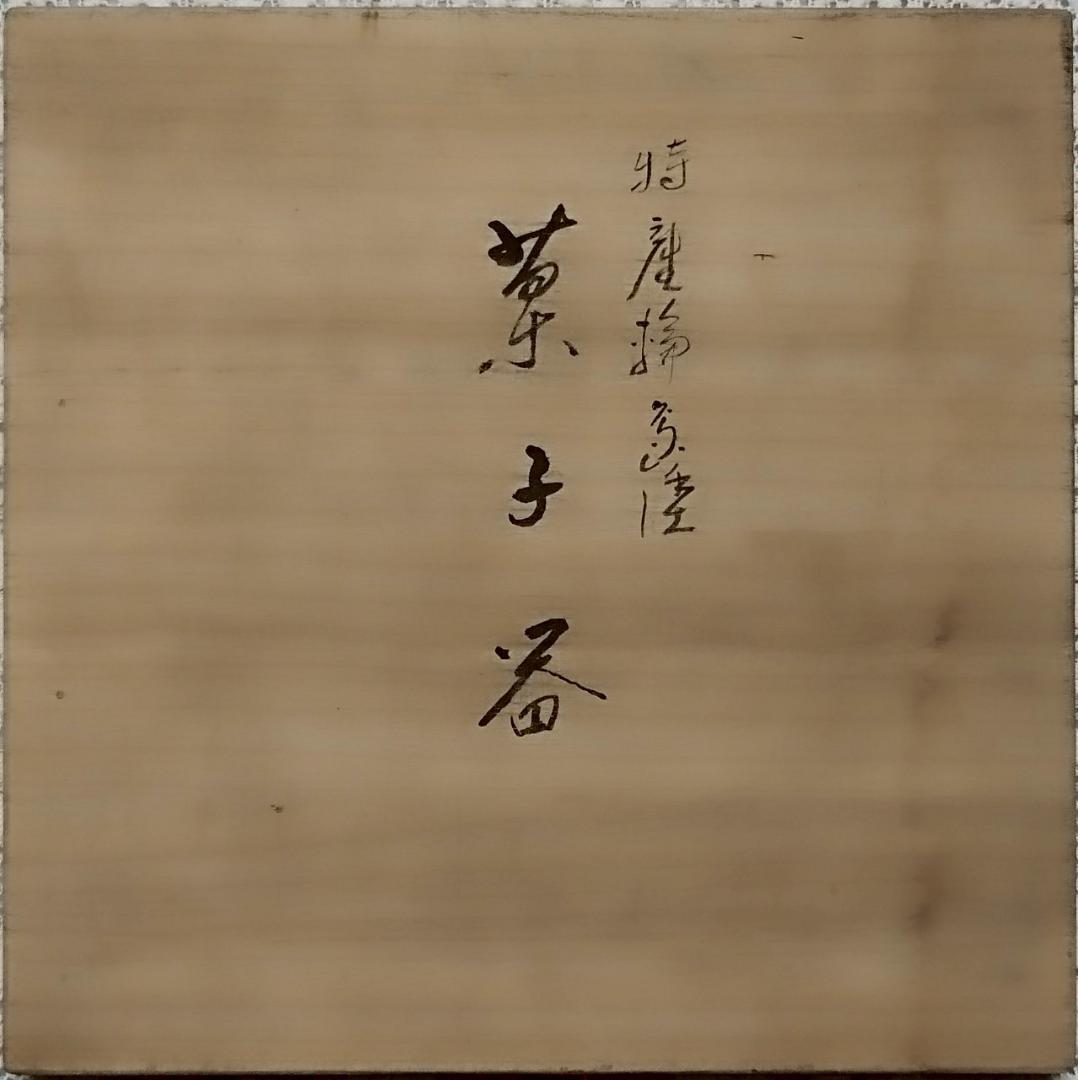 特産輪島塗
菓子器